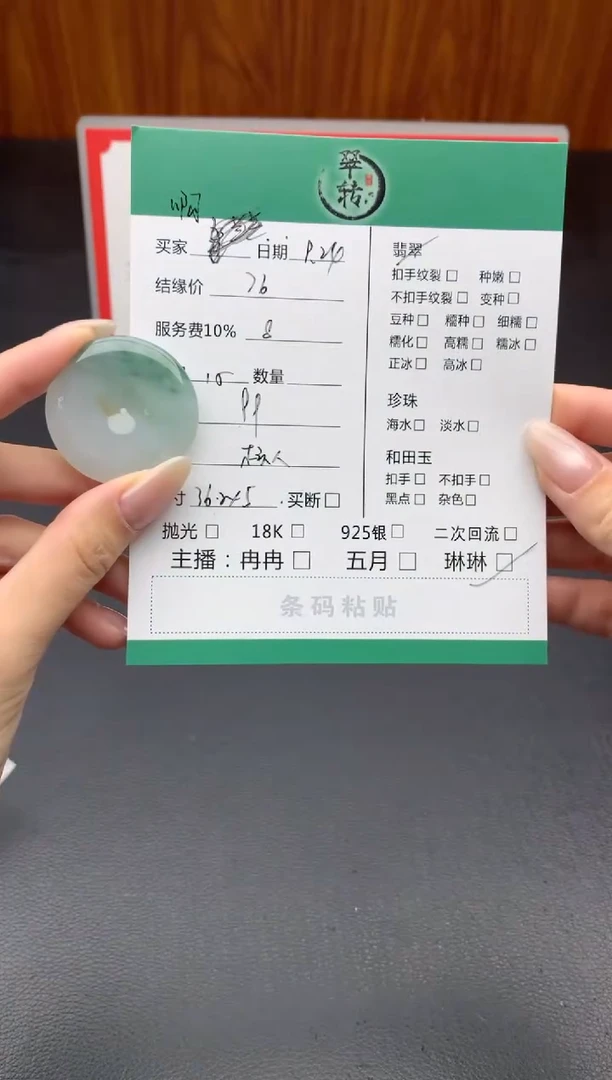 翠祜
买家 日期
结缘价 76
服务费10% 8
15 数量
寸 36.2x5 .买断□
翡翠
扣手纹裂□ 种嫩□
不扣手纹裂□ 变种□
豆种□ 糯种□ 细糯□
糯化□ 高糯□ 糯冰□
正冰□ 高冰□
珍珠
海水□ 淡水□
和田玉
扣手□ 不扣手□
黑点□ 杂色□
抛光□ 18K□ 925银□ 二次回流□
主播：冉冉□ 五月□ 琳琳□
条码粘贴